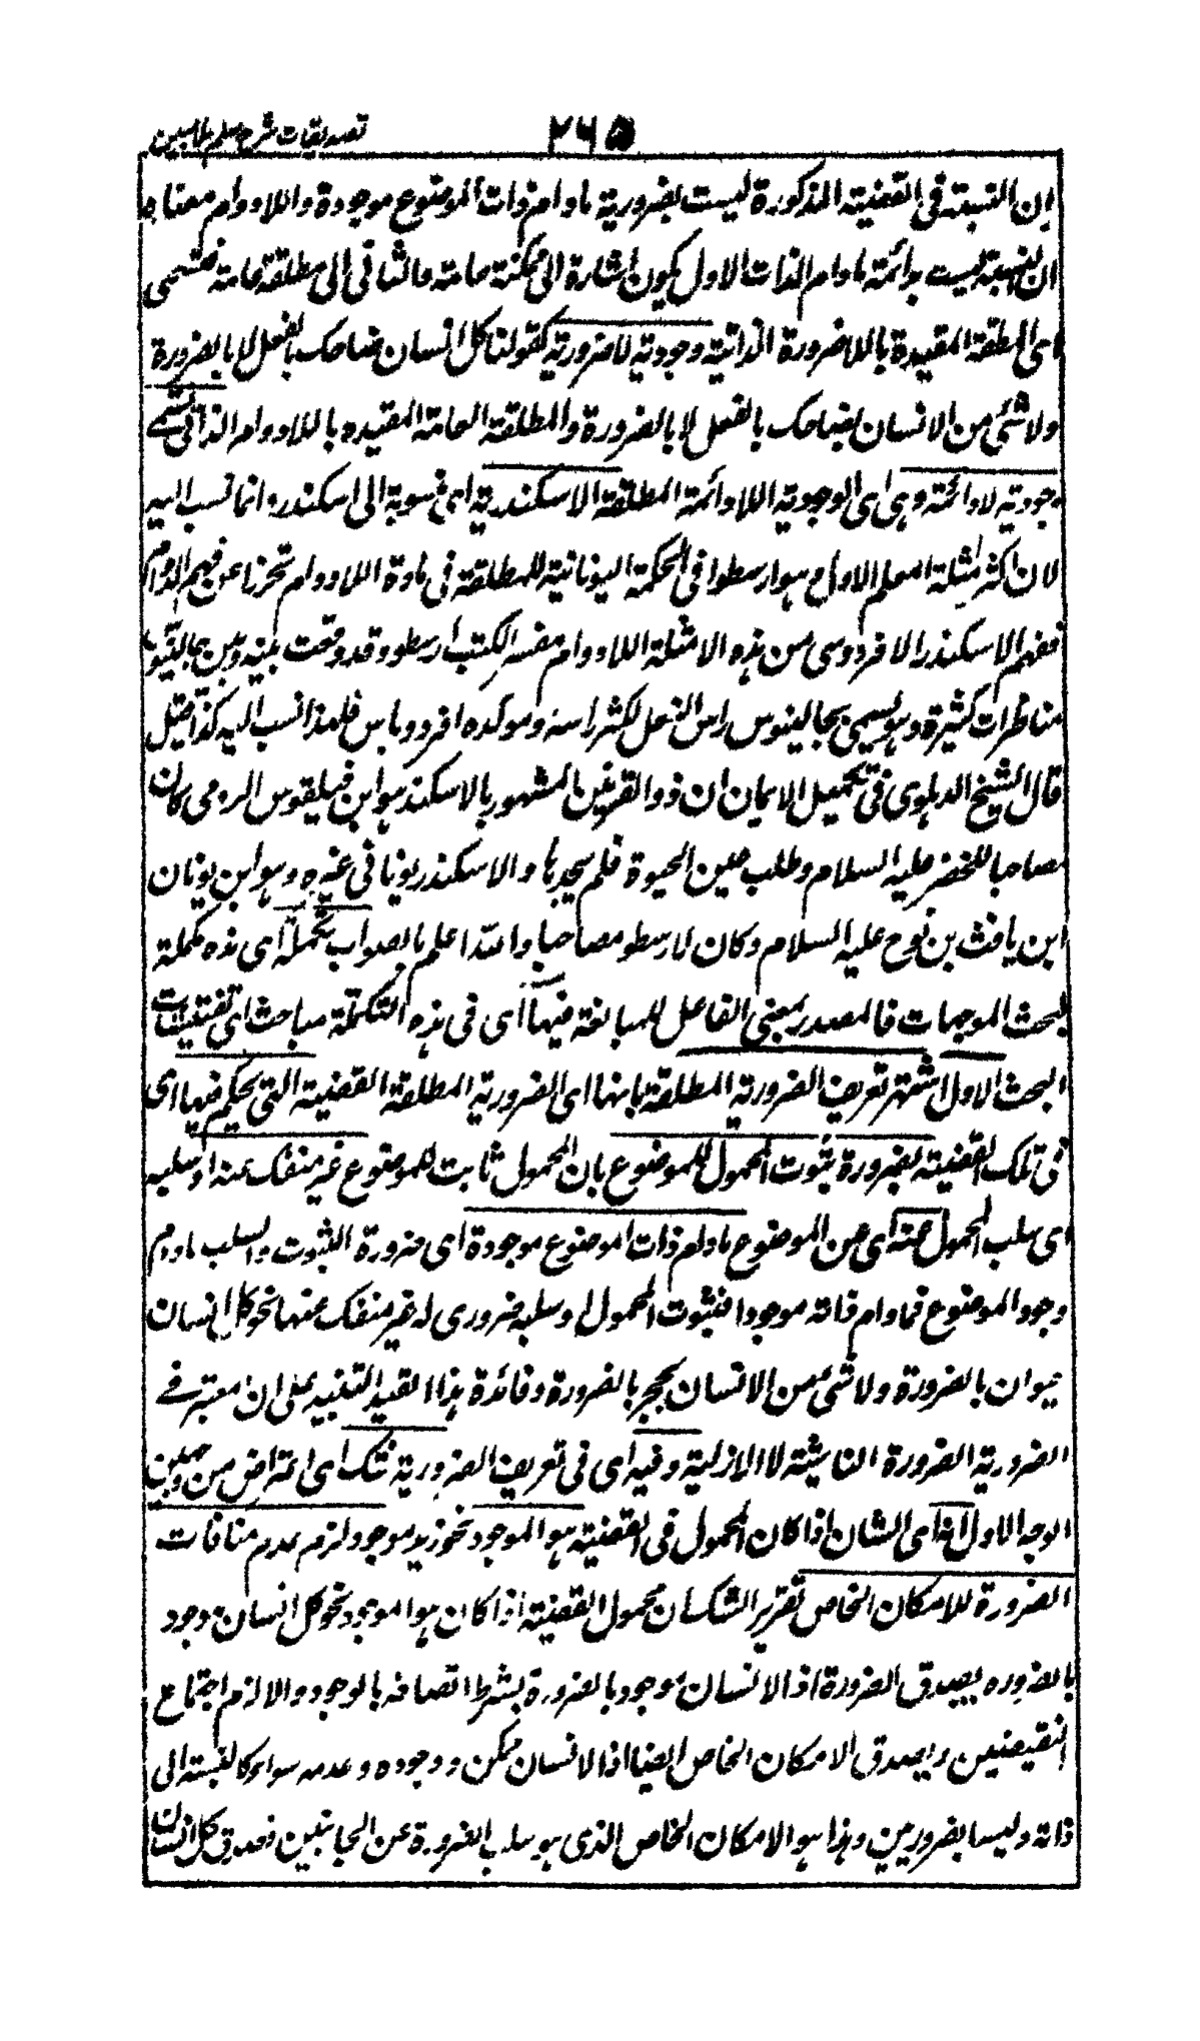 تصديقات شرح سلم ملا مبين
٢٦٥
ان النسبته فى القضية المذكورة ليست بضرورية مادام ذات الموضوع موجودة واللادوام معناها
ان النسبة ليست بدائمة مادام الذات الاول يكون اشارة الى ممكنة عامة والثانى الى مطلقة عامة فتسمى
اى المطلقة المقيدة باللاضرورة الذاتية وجودية لا ضرورية كقولنا كل انسان ضاحك بالفعل لا بالضرورة
ولا شئ من الانسان بضاحك بالفعل لا بالضرورة والمطلقة العامة المقيده باللادوام الذاتى تسمى
وجودية لا دائمة وهى اى الوجودية اللادائمة المطلقة الاسكندرية اى منسوبة الى اسكندر وانما نسب اليه
لان اكثر مثلة المعلم الاول هو ارسطو فى الحكمة اليونانية للمطلقة فى مادة اللادوام تحرزا عن فهم الدوام
ففهم الاسكندر الافردوسى من هذه الامثلة اللادوام مفسر الكتب ارسطو وقد وقعت بينه وبين جالينوس
مناظرات كثيرة وهو يسمى بجالينوس راس البغل لكثر راسه ومولده افردوباس فلهذا نسب اليه كذا قيل
قال الشيخ الدهلوى فى تكميل الايمان ان ذو القرنين المشهور بالاسكندر هو ابن فيلقوس الرومى كان
مصاحبا للخضر عليه السلام وطلب عين الحيوة فلم يجدها والاسكندر يونانى غيره وهو ابن يونان
ابن يافث بن نوح عليه السلام وكان لارسطو مصاحبا والله اعلم بالصواب تكملة اى هذه مكملة
لبحث الموجهات فالمصدر بمعنى الفاعل للمبالغة فيها اى فى هذه التكملة مباحث اى تفتيشات
البحث الاول اشتهر تعريف الضرورية المطلقة بانها اى الضرورية المطلقة القضية التى يحكم فيها اى
فى تلك القضية بضرورة ثبوت المحمول للموضوع بان المحمول ثابت للموضوع غير منفك عنه او سلبه
اى سلب المحمول عنه اى عن الموضوع مادام ذات الموضوع موجودة اى ضرورة الثبوت والسلب مادام
وجود الموضوع فمادام ذاته موجودا فثبوت المحمول له وسلبه ضرورى له غير منفك عنها نحو كل انسان
حيوان بالضرورة ولا شئ من الانسان بحجر بالضرورة وفائدة هذا القيد التنبيه على ان المعتبر فى
الضرورية الضرورة الناشية لا الازلية وفيه اى فى تعريف الضرورية شك اى اعتراض من وجهين
الوجه الاول انه اى الشان اذا كان المحمول فى القضية هو الموجود نحو زيد موجود لزم عدم منافات
الضرورة للامكان الخاص تقرير الشك ان محمول القضية اذا كان هو الموجود نحو كل انسان موجود
بالضرورة يصدق الضرورة اذ الانسان موجود بالضرورة بشرط اتصافه بالوجود والا لزم اجتماع
النقيضين ويصدق الامكان الخاص ايضا اذ الانسان ممكن ووجوده وعدمه سواء كالنسبة الى
ذاته وليسا بضروريين وهذا هو الامكان الخاص الذى هو سلب الضرورة عن الجانبين فصدق كل انسان